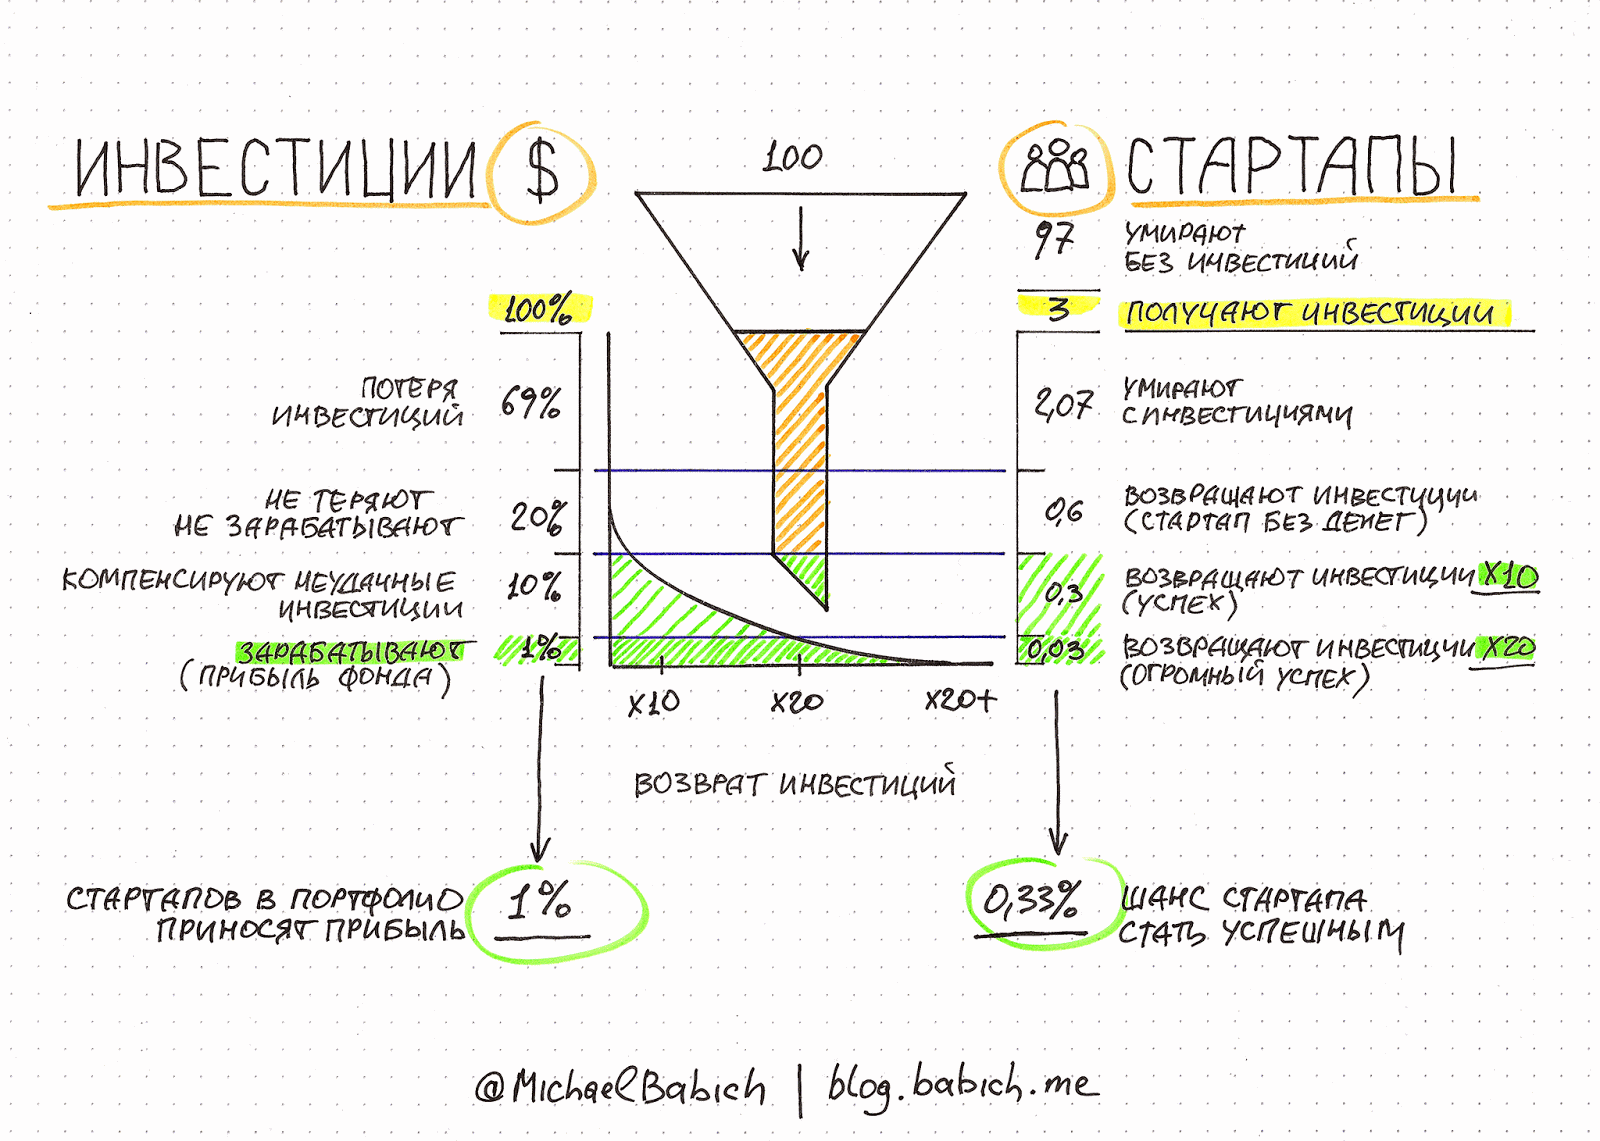 ИНВЕСТИЦИИ $
100
СТАРТАПЫ
97 УМИРАЮТ
БЕЗ ИНВЕСТИЦИЙ
100%
3 ПОЛУЧАЮТ ИНВЕСТИЦИИ
ПОТЕРЯ
ИНВЕСТИЦИЙ
69%
2,07 УМИРАЮТ
С ИНВЕСТИЦИЯМИ
НЕ ТЕРЯЮТ
НЕ ЗАРАБАТЫВАЮТ
20%
0,6 ВОЗВРАЩАЮТ ИНВЕСТИЦИИ
(СТАРТАП БЕЗ ДЕНЕГ)
КОМПЕНСИРУЮТ НЕУДАЧНЫЕ
ИНВЕСТИЦИИ
10%
0,3 ВОЗВРАЩАЮТ ИНВЕСТИЦИИ X10
(УСПЕХ)
ЗАРАБАТЫВАЮТ
(ПРИБЫЛЬ ФОНДА)
1%
0,03 ВОЗВРАЩАЮТ ИНВЕСТИЦИИ X20
(ОГРОМНЫЙ УСПЕХ)
X10 X20 X20+
ВОЗВРАТ ИНВЕСТИЦИЙ
СТАРТАПОВ В ПОРТФОЛИО
ПРИНОСЯТ ПРИБЫЛЬ
1%
0,33% ШАНС СТАРТАПА
СТАТЬ УСПЕШНЫМ
@MichaelBabich | blog.babich.me